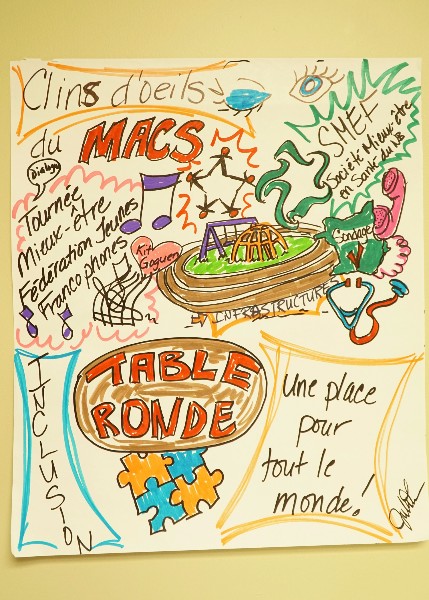 Clins d'oeils
du MACS
SMEF
Société Mieux-être
en Santé du NB
Dialogue
Tournée
Mieux-être
Fédération Jeunes
Francophones
Kit
Goguen
Sondage
INFRASTRUCTURES
TABLE
RONDE
INCLUSION
Une place
pour
tout le
monde!